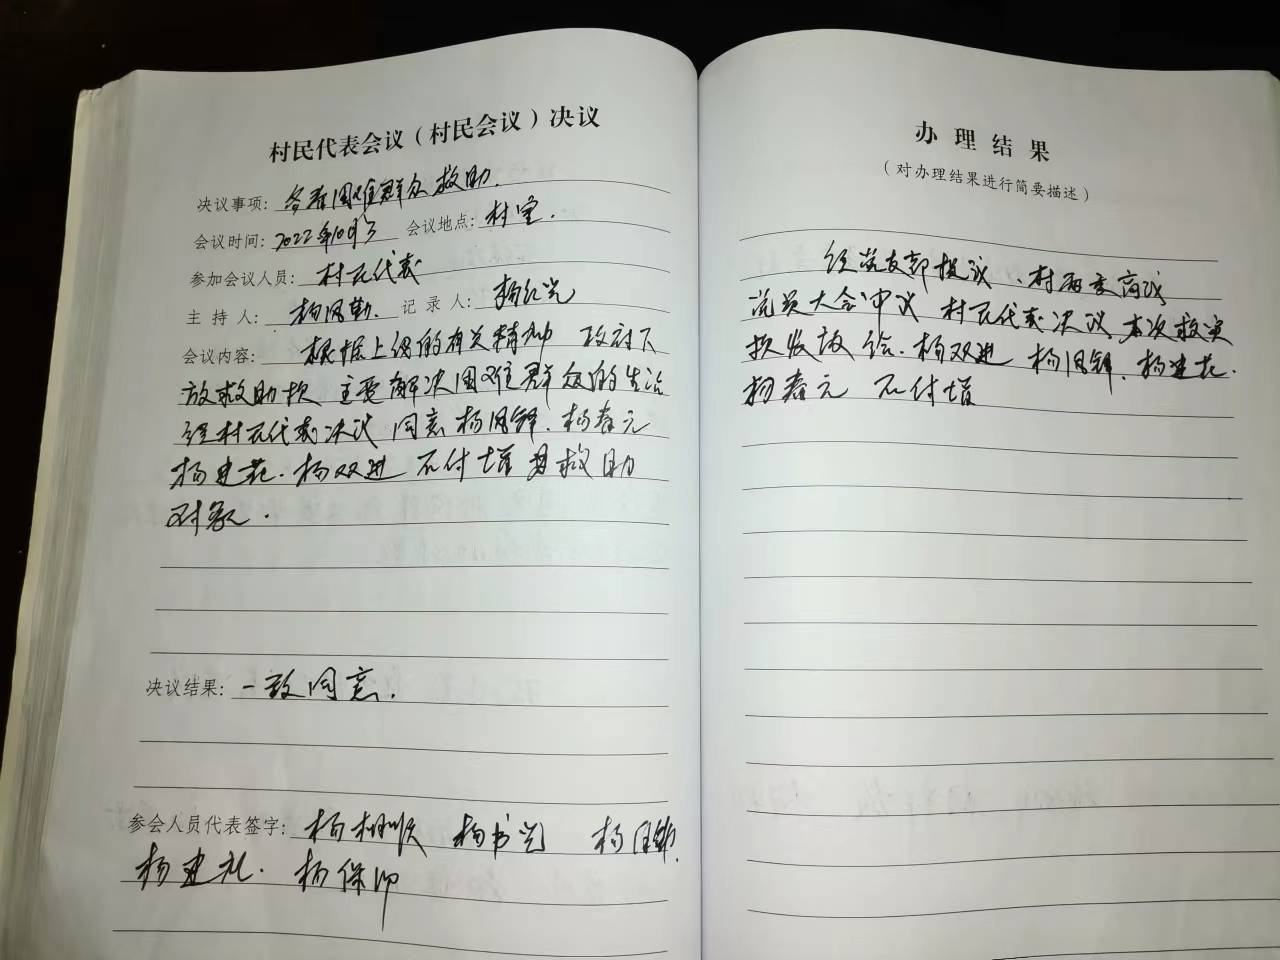 村民代表会议（村民会议）决议
决议事项：冬春困难群众救助.
会议时间：2022年10月3 会议地点：村室.
参加会议人员：村民代表
主持人：杨风勤. 记录人：杨红党
会议内容：根据上级的有关精神 政府下
放救助款 主要解决困难群众的生活
经村民代表决议 同意杨风锋. 杨春元
杨建花. 杨双进 石付增 为救助
对象.
决议结果：一致同意.
参会人员代表签字：杨树顺 杨书党 杨
杨建礼. 杨保
办理结果
（对办理结果进行简要描述）
经党支部提议、村两委商议
党员大会审议 村民代表决议 本次救灾
款发放给. 杨双进 杨风锋. 杨建花.
杨春元 石付增